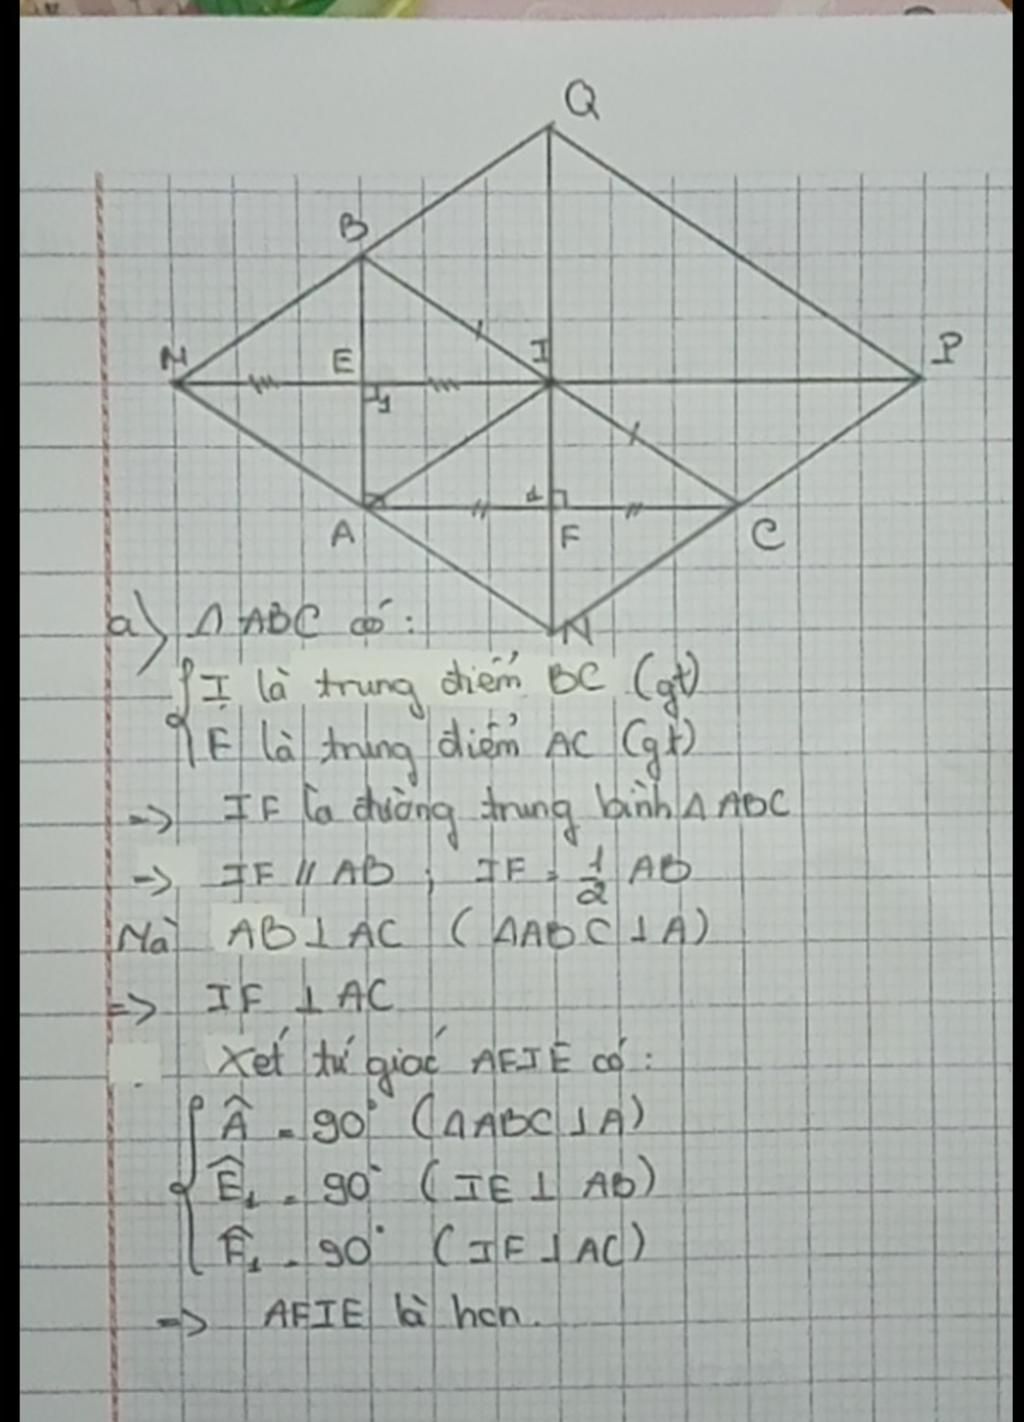 Q
B
M E I P
1
1
A F C
N
a) Δ ABC có:
I là trung điểm BC (gt)
F là trung điểm AC (gt)
=> IF là đường trung bình Δ ABC
=> IF // AB ; IF = 1/2 AB
Mà AB ⊥ AC (ΔABC ⊥ A)
=> IF ⊥ AC
Xét tứ giác AFIE có:
Â = 90° (ΔABC ⊥ A)
Ê₁ = 90° (IE ⊥ AB)
F̂₁ = 90° (IF ⊥ AC)
=> AFIE là hcn.